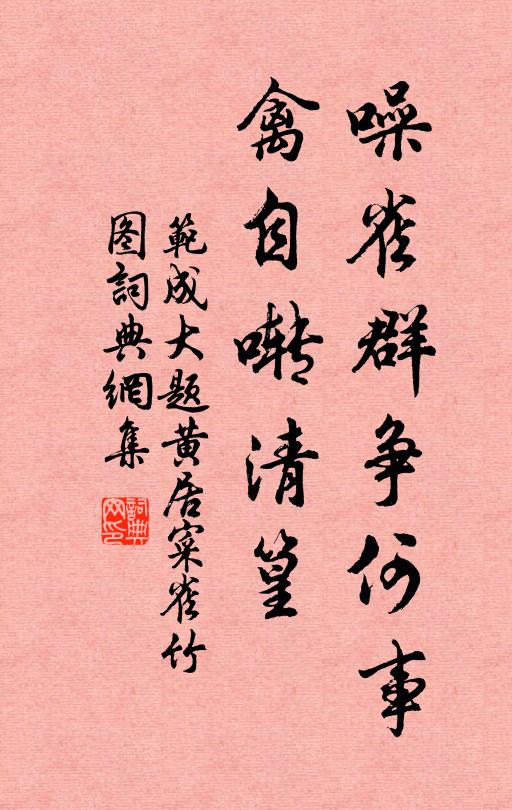 噪雀群争何事
禽自啭清篁
範成大题黄居寀雀竹
图詞典網集
詞典网印